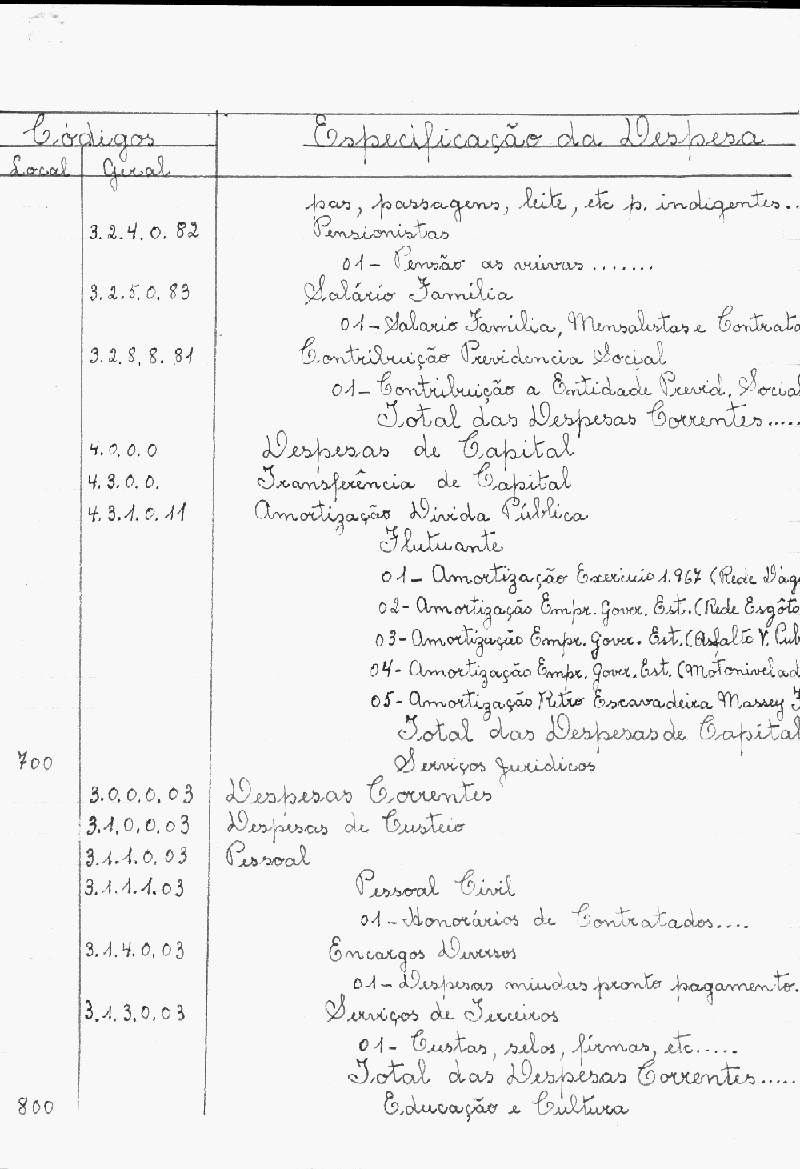 Códigos Especificação da Despesa
Local Geral
pas, passagens, leite, etc p. indigentes..
3.2.4.0.82 Pensionistas
01- Pensão as viúvas .......
3.2.5.0.83 Salário Família
01- Salario Família, Mensalistas e Contrata
3.2.8.8.81 Contribuição Previdencia Social
01- Contribuição a Entidade Previd. Social
Total das Despesas Correntes.....
4.0.0.0 Despesas de Capital
4.3.0.0. Transferência de Capital
4.3.1.0.11 Amortização Divida Pública
Flutuante
01- Amortização Exercicio 1.967 (Rede Dág
02- Amortização Empr. Gover. Est. (Rede Esgôto
03- Amortização Empr. Gover. Est. (Asfalto V. Pub
04- Amortização Empr. Gover. Est. (Motonivelad
05- Amortização Retro Escavadeira Massey F
Total das Despesas de Capital
700 Serviços Juridicos
3.0.0.0.03 Despesas Correntes
3.1.0.0.03 Despesas de Custeio
3.1.1.0.03 Pessoal
3.1.1.1.03 Pessoal Civil
01- Honorários de Contratados....
3.1.4.0.03 Encargos Diversos
01- Despesas miudas pronto pagamento.
3.1.3.0.03 Serviços de Terceiros
01- Custas, selos, fírmas, etc.....
Total das Despesas Correntes.....
800 Educação e Cultura